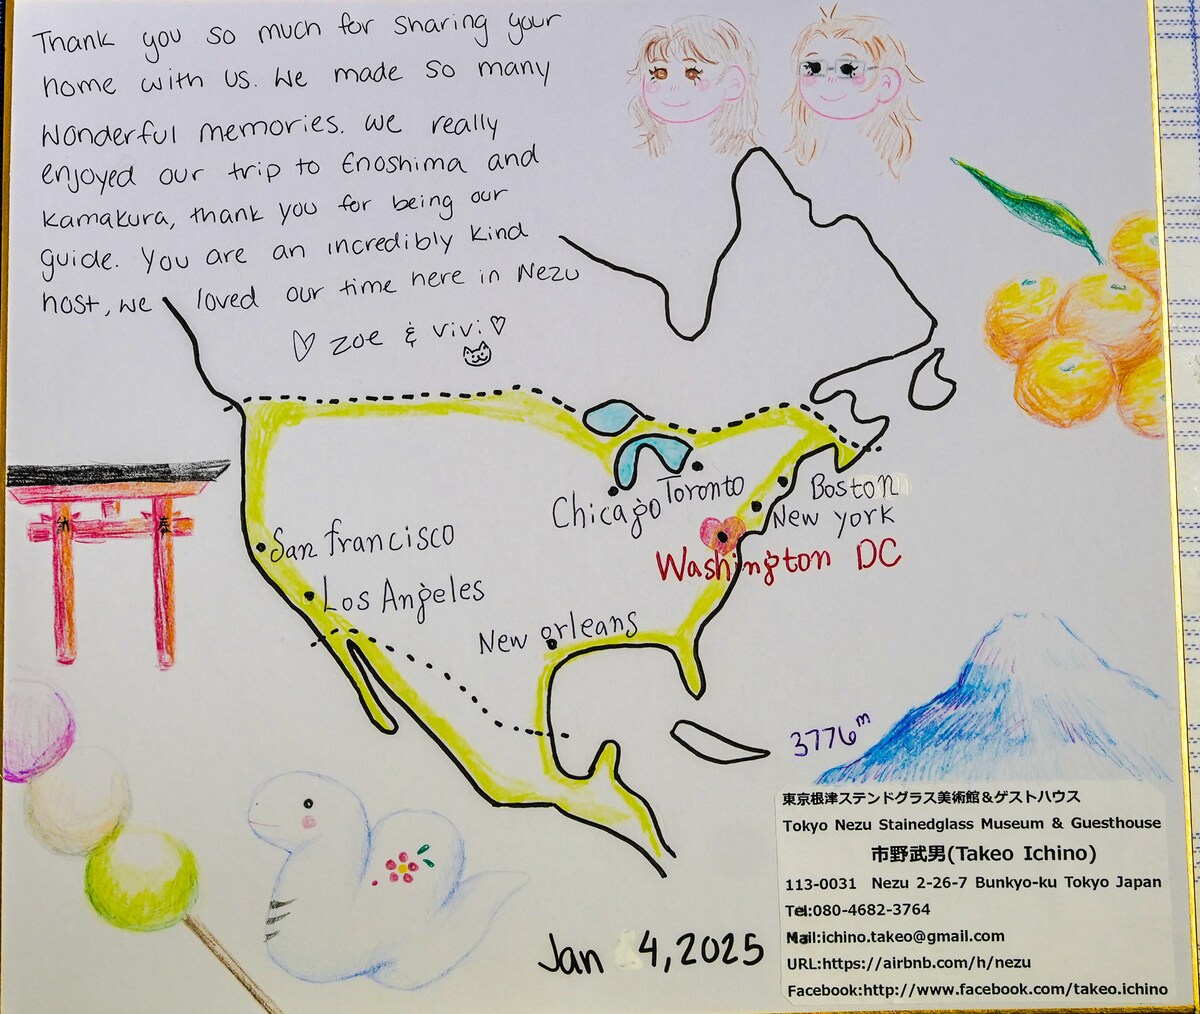 Thank you so much for sharing your
home with us. We made so many
wonderful memories. We really
enjoyed our trip to Enoshima and
Kamakura, thank you for being our
guide. You are an incredibly kind
host, we loved our time here in Nezu
♡ Zoe & Vivi ♡
Toronto
Chicago
Boston
New york
Washington DC
San francisco
Los Angeles
New orleans
納
奉
3776m
Jan 4, 2025
東京根津ステンドグラス美術館&ゲストハウス
Tokyo Nezu Stainedglass Museum & Guesthouse
市野武男(Takeo Ichino)
113-0031 Nezu 2-26-7 Bunkyo-ku Tokyo Japan
Tel:080-4682-3764
Mail:ichino.takeo@gmail.com
URL:https://airbnb.com/h/nezu
Facebook:http://www.facebook.com/takeo.ichino